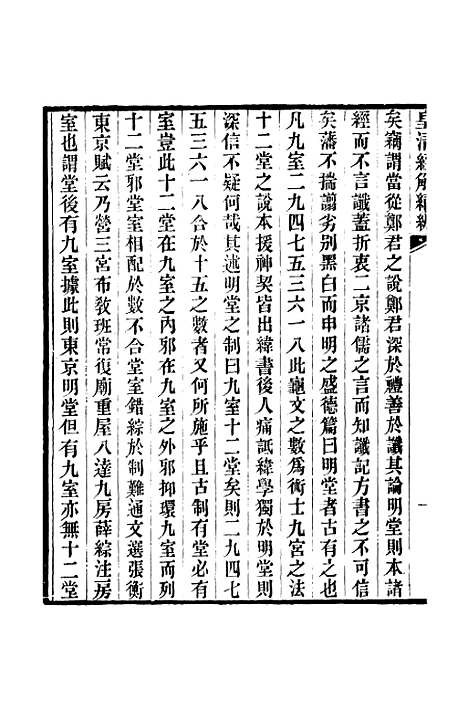 皇清經解續編
一
矣竊謂當從鄭君之說鄭君深於禮善於讖其論明堂則本諸
經而不言讖蓋折衷二京諸儒之言而知讖記方書之不可信
矣藩不揣譾劣別黑白而申明之盛德篇曰明堂者古有之也
凡九室二九四七五三六一八此龜文之數為術士九宮之法
十二堂之說本援神契皆出緯書後人痛詆緯學獨於明堂則
深信不疑何哉其述明堂之制曰九室十二堂矣則二九四七
五三六一八合於十五之數者又何所施乎且古制有堂必有
室豈此十二堂在九室之內邪在九室之外邪抑環九室而列
十二堂邪堂室相配於數不合堂室錯綜於制難通文選張衡
東京賦云乃營三宮布敎班常復廟重屋八達九房薛綜注房
室也謂堂後有九室據此則東京明堂但有九室亦無十二堂